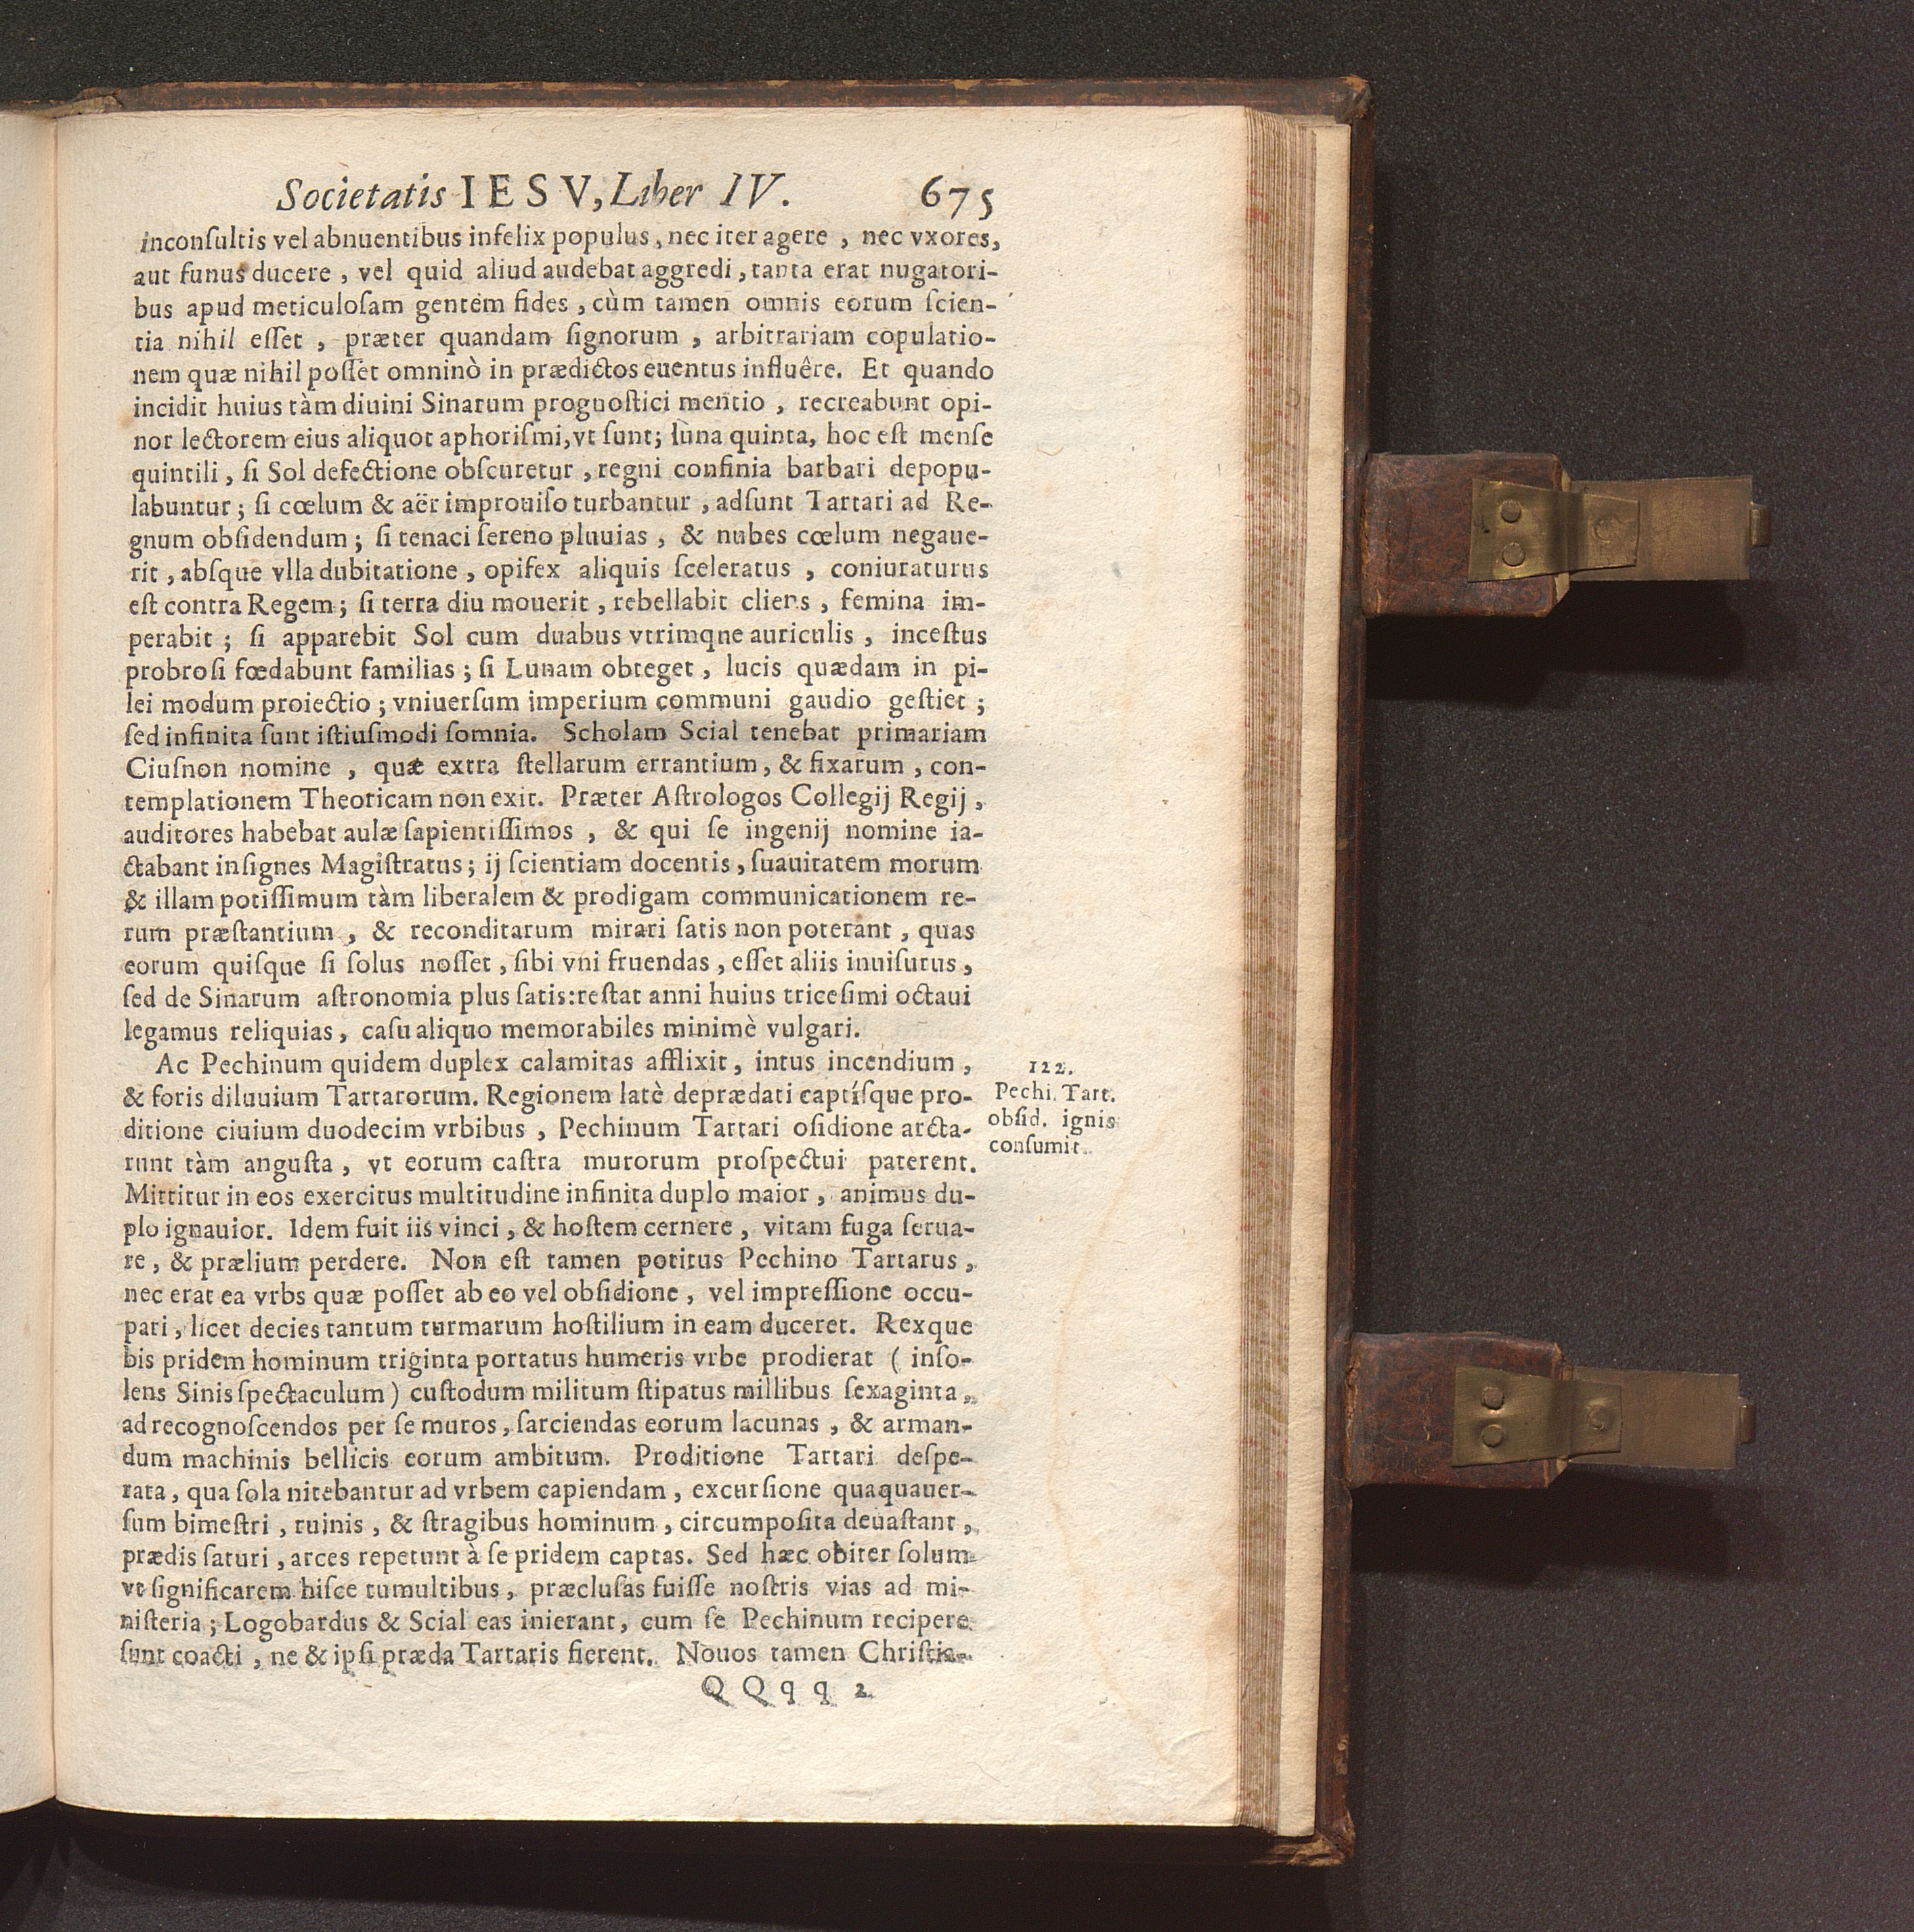 Societatis IESV, Liber IV. 675
inconſultis vel abnuentibus infelix populus, nec iter agere, nec vxores,
aut funus ducere, vel quid aliud audebat aggredi, tanta erat nugatori-
bus apud meticuloſam gentem fides, cùm tamen omnis eorum ſcien-
tia nihil eſſet, præter quandam ſignorum, arbitrariam copulatio-
nem quæ nihil poſſet omninò in prædictos euentus influêre. Et quando
incidit huius tàm diuini Sinarum prognoſtici mentio, recreabunt opi-
nor lectorem eius aliquot aphoriſmi, vt ſunt; luna quinta, hoc eſt menſe
quintili, ſi Sol defectione obſcuretur, regni confinia barbari depopu-
labuntur; ſi cœlum & aër improuiſo turbantur, adſunt Tartari ad Re-
gnum obſidendum; ſi tenaci ſereno pluuias, & nubes cœlum negaue-
rit, abſque vlla dubitatione, opifex aliquis ſceleratus, coniuraturus
eſt contra Regem; ſi terra diu mouerit, rebellabit cliens, femina im-
perabit; ſi apparebit Sol cum duabus vtrimqne auriculis, inceſtus
probroſi fœdabunt familias; ſi Lunam obteget, lucis quædam in pi-
lei modum proiectio; vniuerſum imperium communi gaudio geſtiet;
ſed infinita ſunt iſtiuſmodi ſomnia. Scholam Scial tenebat primariam
Ciuſnon nomine, quæ extra ſtellarum errantium, & fixarum, con-
templationem Theoricam non exit. Præter Aſtrologos Collegij Regij,
auditores habebat aulæ ſapientiſſimos, & qui ſe ingenij nomine ia-
ctabant inſignes Magiſtratus; ij ſcientiam docentis, ſuauitatem morum
& illam potiſſimum tàm liberalem & prodigam communicationem re-
rum præſtantium, & reconditarum mirari ſatis non poterant, quas
eorum quiſque ſi ſolus noſſet, ſibi vni fruendas, eſſet aliis inuiſurus,
ſed de Sinarum aſtronomia plus ſatis: reſtat anni huius triceſimi octaui
legamus reliquias, caſu aliquo memorabiles minimè vulgari.
Ac Pechinum quidem duplex calamitas afflixit, intus incendium,
& foris diluuium Tartarorum. Regionem latè deprædati captíſque pro-
ditione ciuium duodecim vrbibus, Pechinum Tartari oſidione arcta-
runt tàm anguſta, vt eorum caſtra murorum proſpectui paterent.
Mittitur in eos exercitus multitudine infinita duplo maior, animus du-
plo ignauior. Idem fuit iis vinci, & hoſtem cernere, vitam fuga ſerua-
re, & prælium perdere. Non eſt tamen potitus Pechino Tartarus,
nec erat ea vrbs quæ poſſet ab eo vel obſidione, vel impreſſione occu-
pari, licet decies tantum turmarum hoſtilium in eam duceret. Rexque
bis pridem hominum triginta portatus humeris vrbe prodierat (inſo-
lens Sinis ſpectaculum) cuſtodum militum ſtipatus millibus ſexaginta,
ad recognoſcendos per ſe muros, ſarciendas eorum lacunas, & arman-
dum machinis bellicis eorum ambitum. Proditione Tartari deſpe-
rata, qua ſola nitebantur ad vrbem capiendam, excurſione quaquauer-
ſum bimeſtri, ruinis, & ſtragibus hominum, circumpoſita deuaſtant,
prædis ſaturi, arces repetunt à ſe pridem captas. Sed hæc obiter ſolum
vt ſignificarem hiſce tumultibus, præcluſas fuiſſe noſtris vias ad mi-
niſteria; Logobardus & Scial eas inierant, cum ſe Pechinum recipere
ſunt coacti, ne & ipſi præda Tartaris fierent. Nouos tamen Chriſtia-
QQqq 2
122.
Pechi. Tart.
obſid. ignis
conſumit.